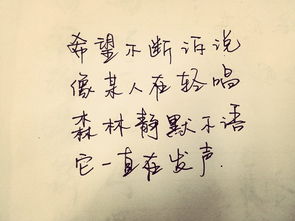 希望不断诉说
像某人在轻唱
森林静默不语
它一直在发声.